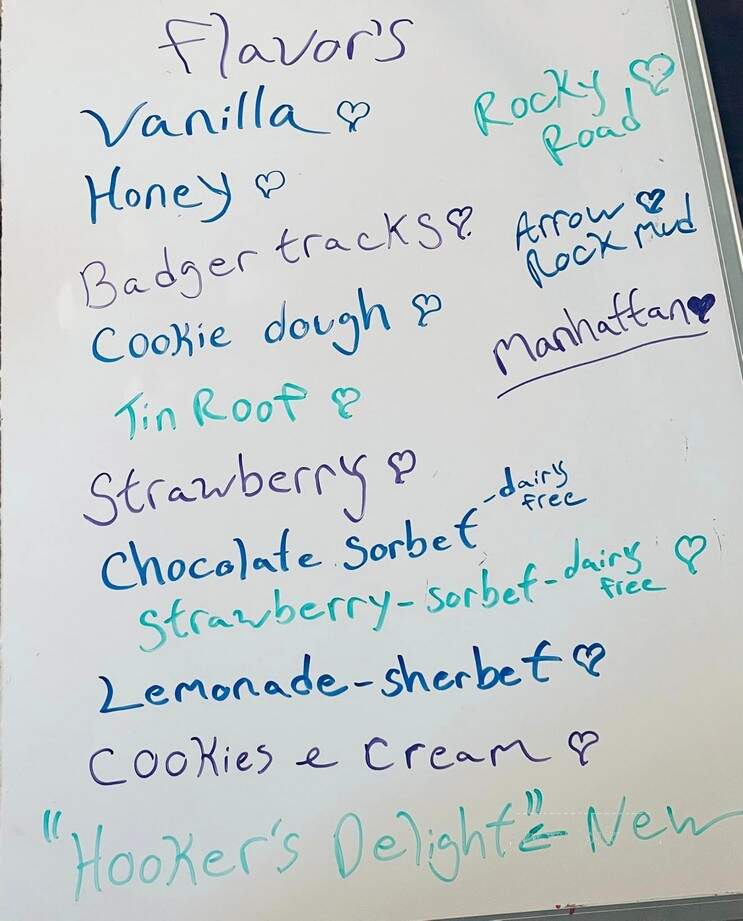 Flavor's
Vanilla ♡
Honey ♡
Badger tracks ♡
Cookie dough ♡
Tin Roof ♡
Strawberry ♡
Chocolate Sorbet - dairy
free
Strawberry-sorbet-dairy
free ♡
Lemonade-sherbet ♡
Cookies e Cream ♡
"Hooker's Delight" ← New
Rocky ♡
Road
Arrow ♡
Rock Mud
Manhattan ♥